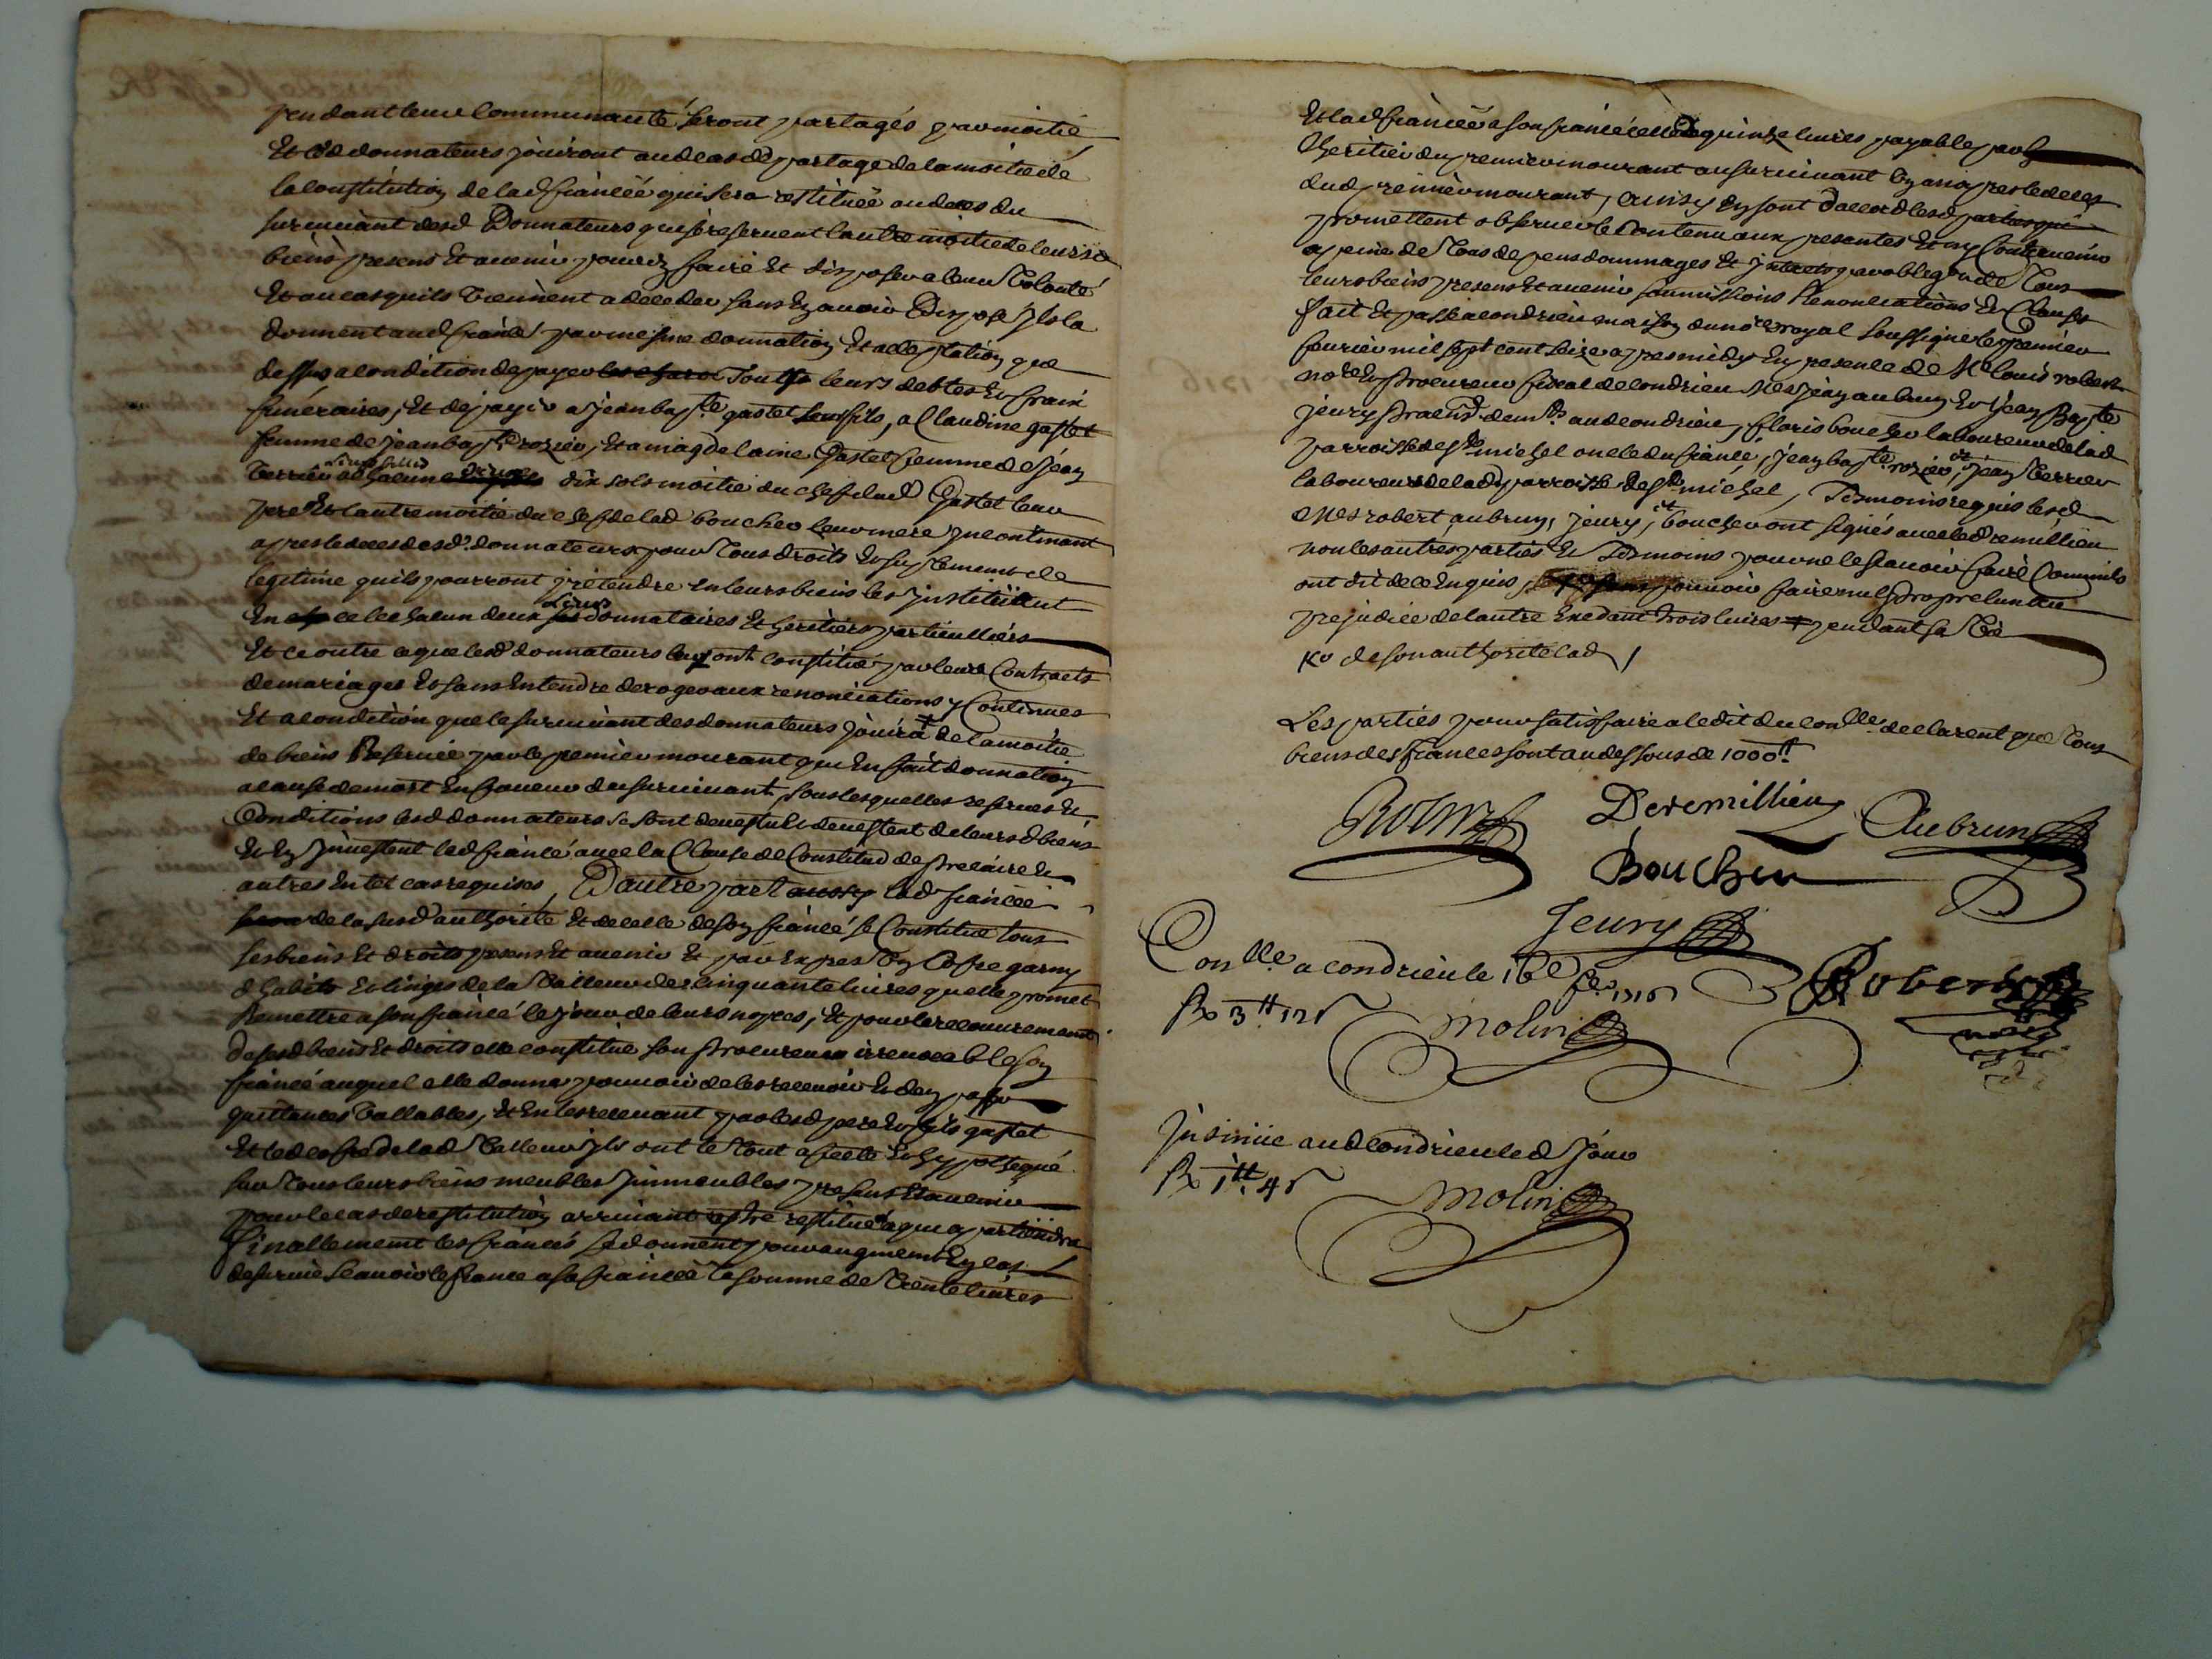 pendant leur Communauté seront partagés par moitié
Et lesd donnateurs joüiront aud cas de partage de la moitié de
la constitution de lad fiancée qui sera restituée au deces du
suruiuant desd Donnateurs qui se reseruent lautre moitié de leursd
biens presens Et auenir pour en faire Et disposer a leur Volonté
Et au cas quils Viennent a deceder sans En auoir disposé Ils la
donnent aud fiancé par mesme donnation Et acceptation que
dessus a condition de payer toutes leurs debtes Et fraix
funéraires, Et de payer a jean bapte gastet leur fils, a Claudine gastet
femme de jean bapte rozier, Et a magdelaine Gastet femme de Jean
Terrier a chacune dix sols moitié du chef dud Gastet leur
pere Et lautre moitié du chef de lad boucher leur mere Incontinant
apres le deces desd donnateurs pour Tous droits Et suplement de
legitime quils pourront prétendre En leurs biens les Instituant
En ce chacun deux leurs donnataires Et heritiers particulliers
Et ce outre ce que lesd donnateurs leur ont constitué par leurs Contracts
de mariages Et sans Entendre deroger aux renonciations y Contenues
Et a condition que le suruiuant des donnateurs joüira de la moitié
de biens Reseruée par le premier mourant qui En fait donnation
a cause de mort En faueur du suruiuant, sous lesquelles reserues Et
Conditions lesd donnateurs se sont deuestu Et deuestent de leursd biens
Et En Inuestent led fiancé auec la Clause de Constitud de precaire Et
autres En tel cas requises, D'autre part lad fiancée
de la susd authorité Et de celle de son fiancé se Constitue tous
ses biens Et droits presens Et auenir Et par Expres Un Cofre garny
d'habits Et linges de la Valleur de cinquante liures quelle promet
Remettre a son fiancé le jour de leurs nopces, Et pour le recouurement
de sesd biens Et droits elle constitue son procureur irreuocable son
fiancé auquel elle donne pouuoir de les receuoir Et den passer
quittances Vallables, Et En les receuant par lesd pere Et fils gastet
Et led cofre de lad Valleur Ils ont le Tout afecté Et hypothequé
sur Tous leurs biens meubles Immeubles presens Et auenir
pour le cas de restitution arriuant estre restitué a qui apartiendra
Finallement les fiancés se donnent pour augment En cas
de suruie scauoir le fiancé a sa fiancée la somme de Trente liures
Et lad fiancée a son fiancé celle de quinze liures payable par
lheritier du premier mourant au suruiuant Un an apres le deces
dud premier mourant, ainsy En sont daccord lesd parties qui
promettent obseruer le Contenu aux presentes Et ny Contreuenir
a peine de Tous depens dommages Et Interets par oblig.on de Tous
leurs biens presens Et auenir soumissions Renonciations Et Clauses
fait Et passé a condrieu maison du no.re royal soussigné le premier
feurier mil sept cent seize apres midy En presence de Me Louis robert
no.re Et procureur fiscal de condrieu Mes Jean aubrun Et Jean Bapte
jeury praens demts aud condrieu, floris boucher laboureur de lad
parroisse de st michel oncle du fiancé, Jean bapte rozier, et Jean Terrier
laboureurs de lad parroisse de st michel, Tesmoins requis lesd
Mes robert aubrun, jeury, et boucher ont signés auec led remillieu
non les autres parties Et Tesmoins pour ne le scauoir faire Comme ils
ont dit de ce Enquis, pouuoir faire nul propre lun au
prejudice de lautre Excedant trois liures pendant sa Vie
Rv de son authorité lad
Les parties pour satisfaire a ledit du conlle declarent que Tous
biens des fiancés sont au dessous de 1000tt
Deremillieu
Aubrun
Boucher
Jeury
Conlle a condrieu le 16e fer 1716
Robert
Rx 3tt 12s
Molin
Insinüé aud condrieu led Jour
Rx 1tt 4s
Molin